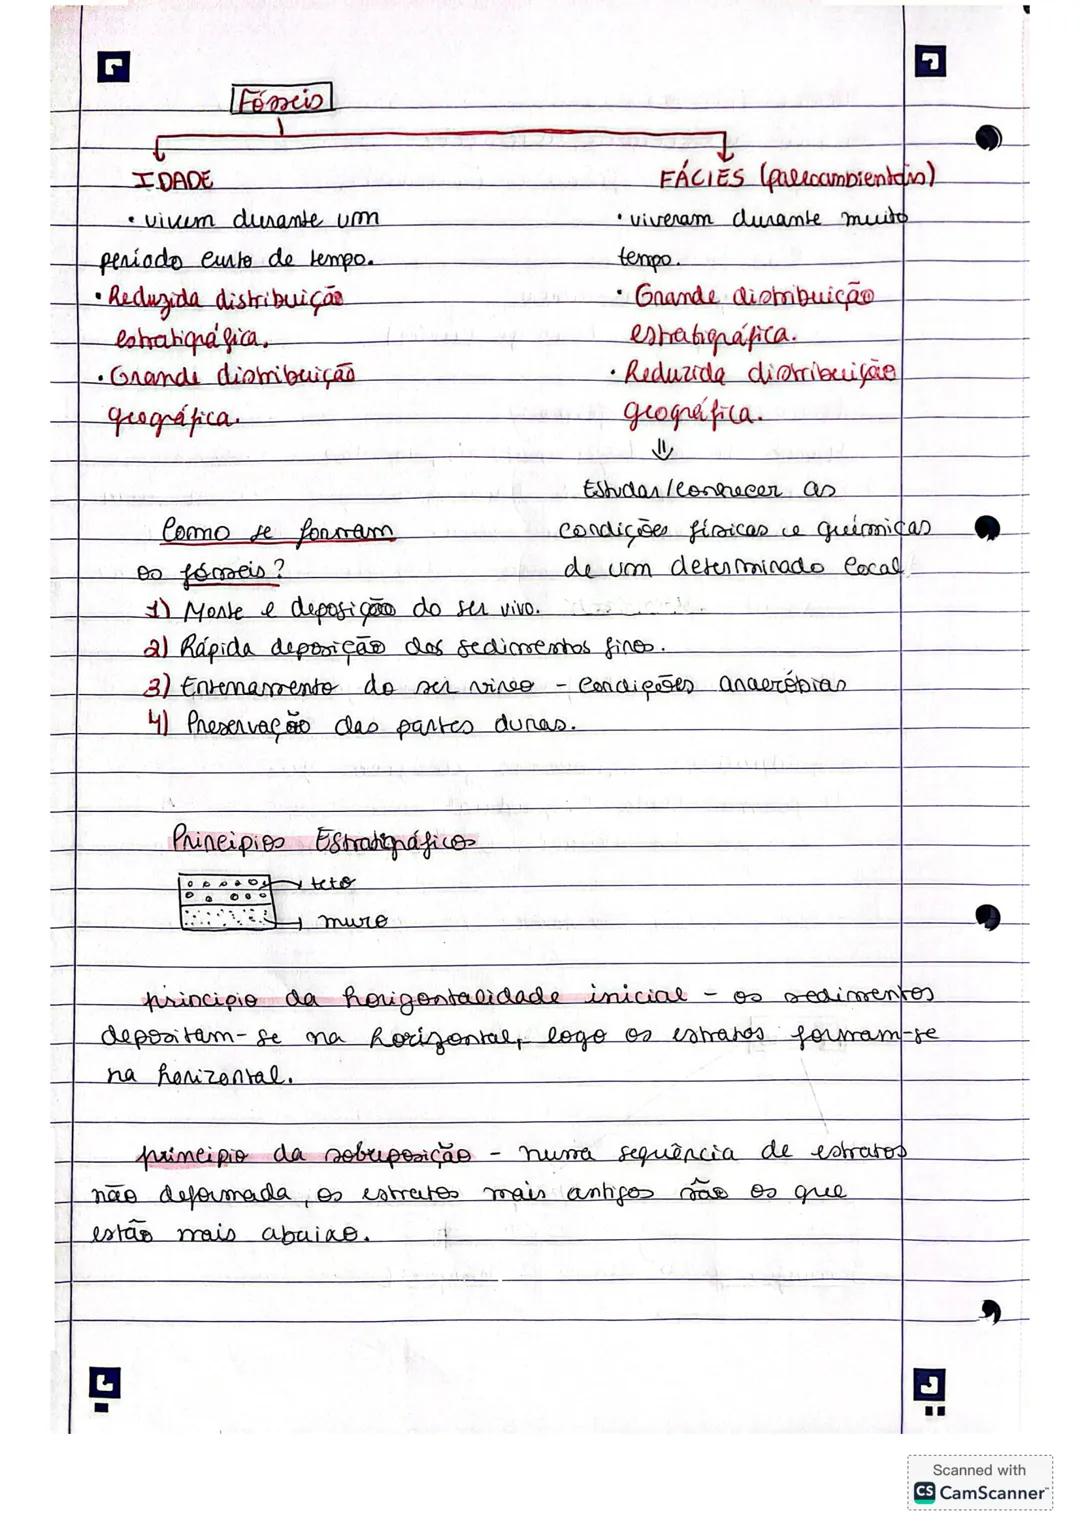 Fósseis
IDADE
• vivem durante um
período curto de tempo.
• Reduzida distribuição
estratigráfica.
• Grande distribuição
geográfica.
FÁCIES (paleoambientais)
• viveram durante muito
tempo.
• Grande distribuição
estratigráfica.
• Reduzida distribuição
geográfica.
⇓
Estudar/conhecer as
condições físicas e químicas
de um determinado local
Como se formam
os fósseis?
1) Morte e deposição do ser vivo.
2) Rápida deposição dos sedimentos finos.
3) Enterramento do ser vivo - condições anaeróbias
4) Preservação das partes duras.
Principios Estratigráficos
teto
muro
principio da horizontalidade inicial - os sedimentos
depositam-se na horizontal, logo os estratos formam-se
na horizontal.
principio da sobreposição - numa sequência de estratos
não deformada, os estratos mais antigos são os que
estão mais abaixo.
Scanned with
CS CamScanner